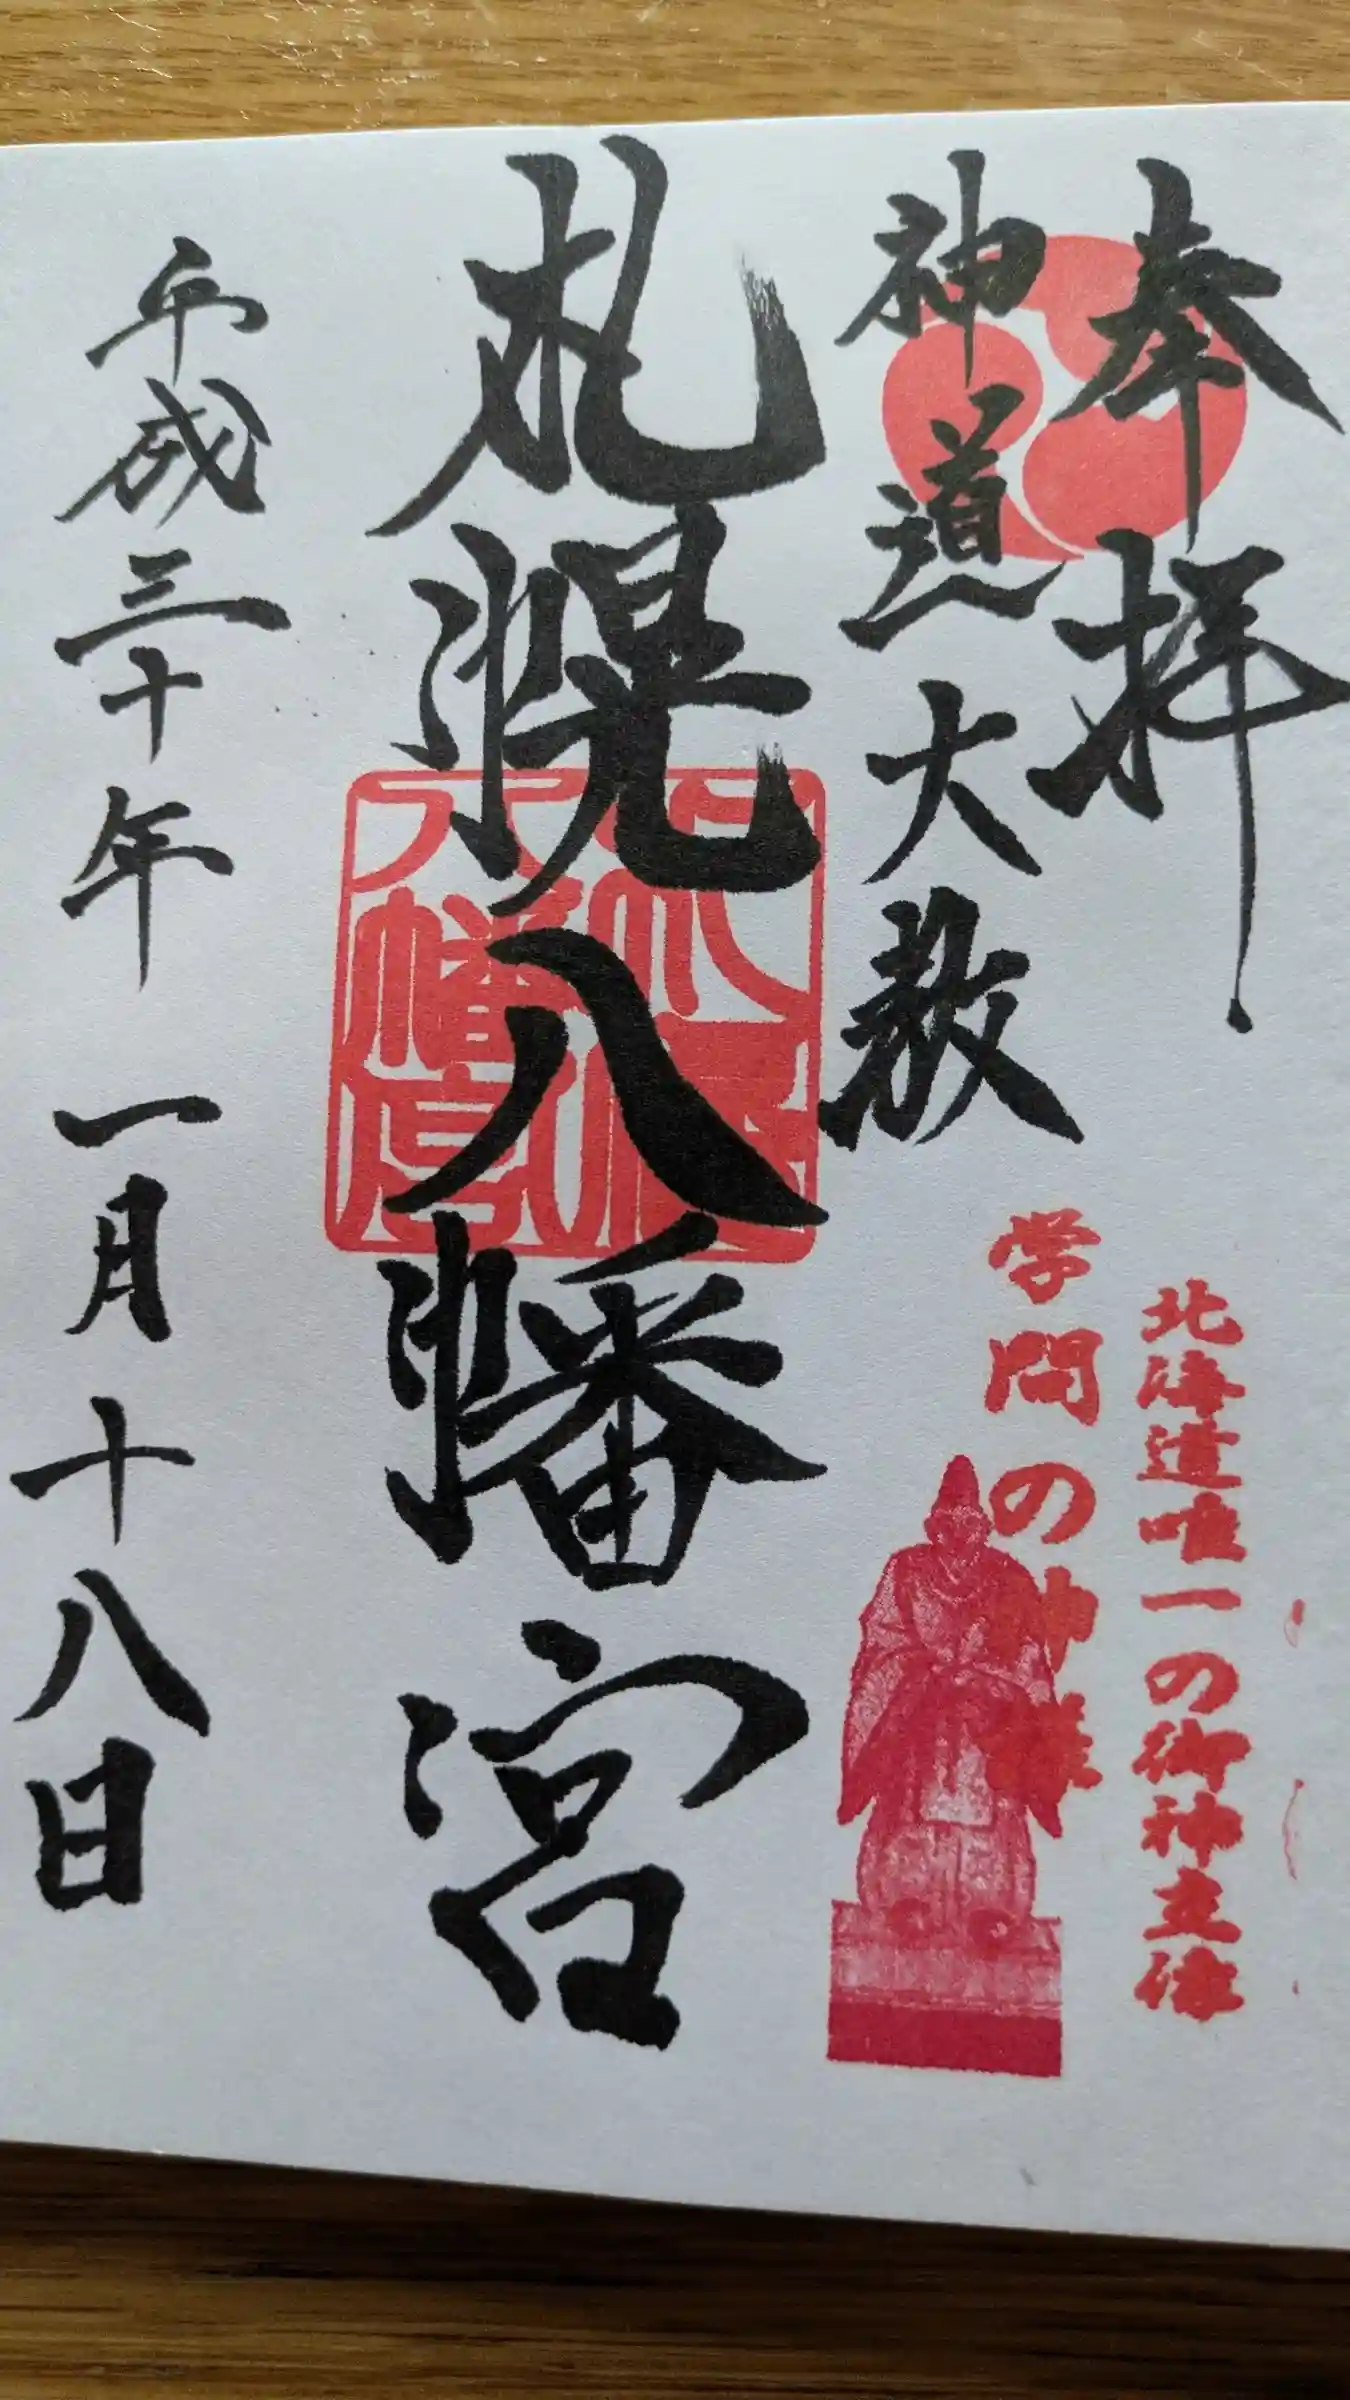 奉拝
神道大教
北海道唯一の御神立像
学問の神様
札幌八幡宮
札幌八幡宮
平成三十年一月十八日